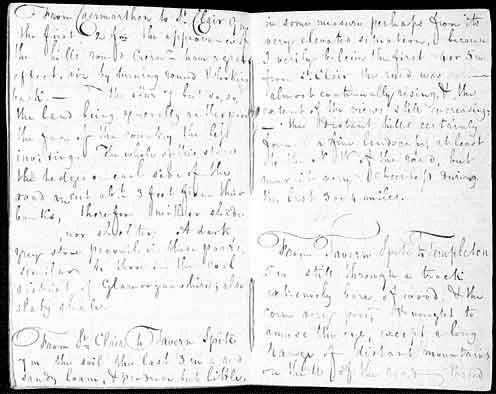 From Caermarthen to St. Clair 9m
the first 2 for the appearance of
the hills round Caerm. have a great
effect, viz by turning round & looking
back — The view of but so, so
the land being generally
the face of the country the less
inviting. The whole of this stage
the hedges on each side of the
road recede abt. 3 feet from their
banks, therefore neither shade
nor shelter. A dark
grey stone prevails in these parts,
similar to those in the coal
district of Glamorganshire; also
slaty shale.
From St. Clair to Tavern Spite
7m the soil the last 3m a red
sandy loam, & produce but little,
in some measure perhaps from its
very elevated situation, because
I verily believe the first 4 or 5m
from St. Clair the road was
almost continually rising & the
extent of the views still increasing
— the distant hills certainly
form a fine landscape, at least
to the N. W. of the road, but
near it very cheerless during
the last 3 or 4 miles.
From Tavern Spite to Templeton
5m still through a track
extremely bare of wood, & the
corn very poor, & nought to
amuse the eye, except a long
range of distant mountains
on the N. of the road